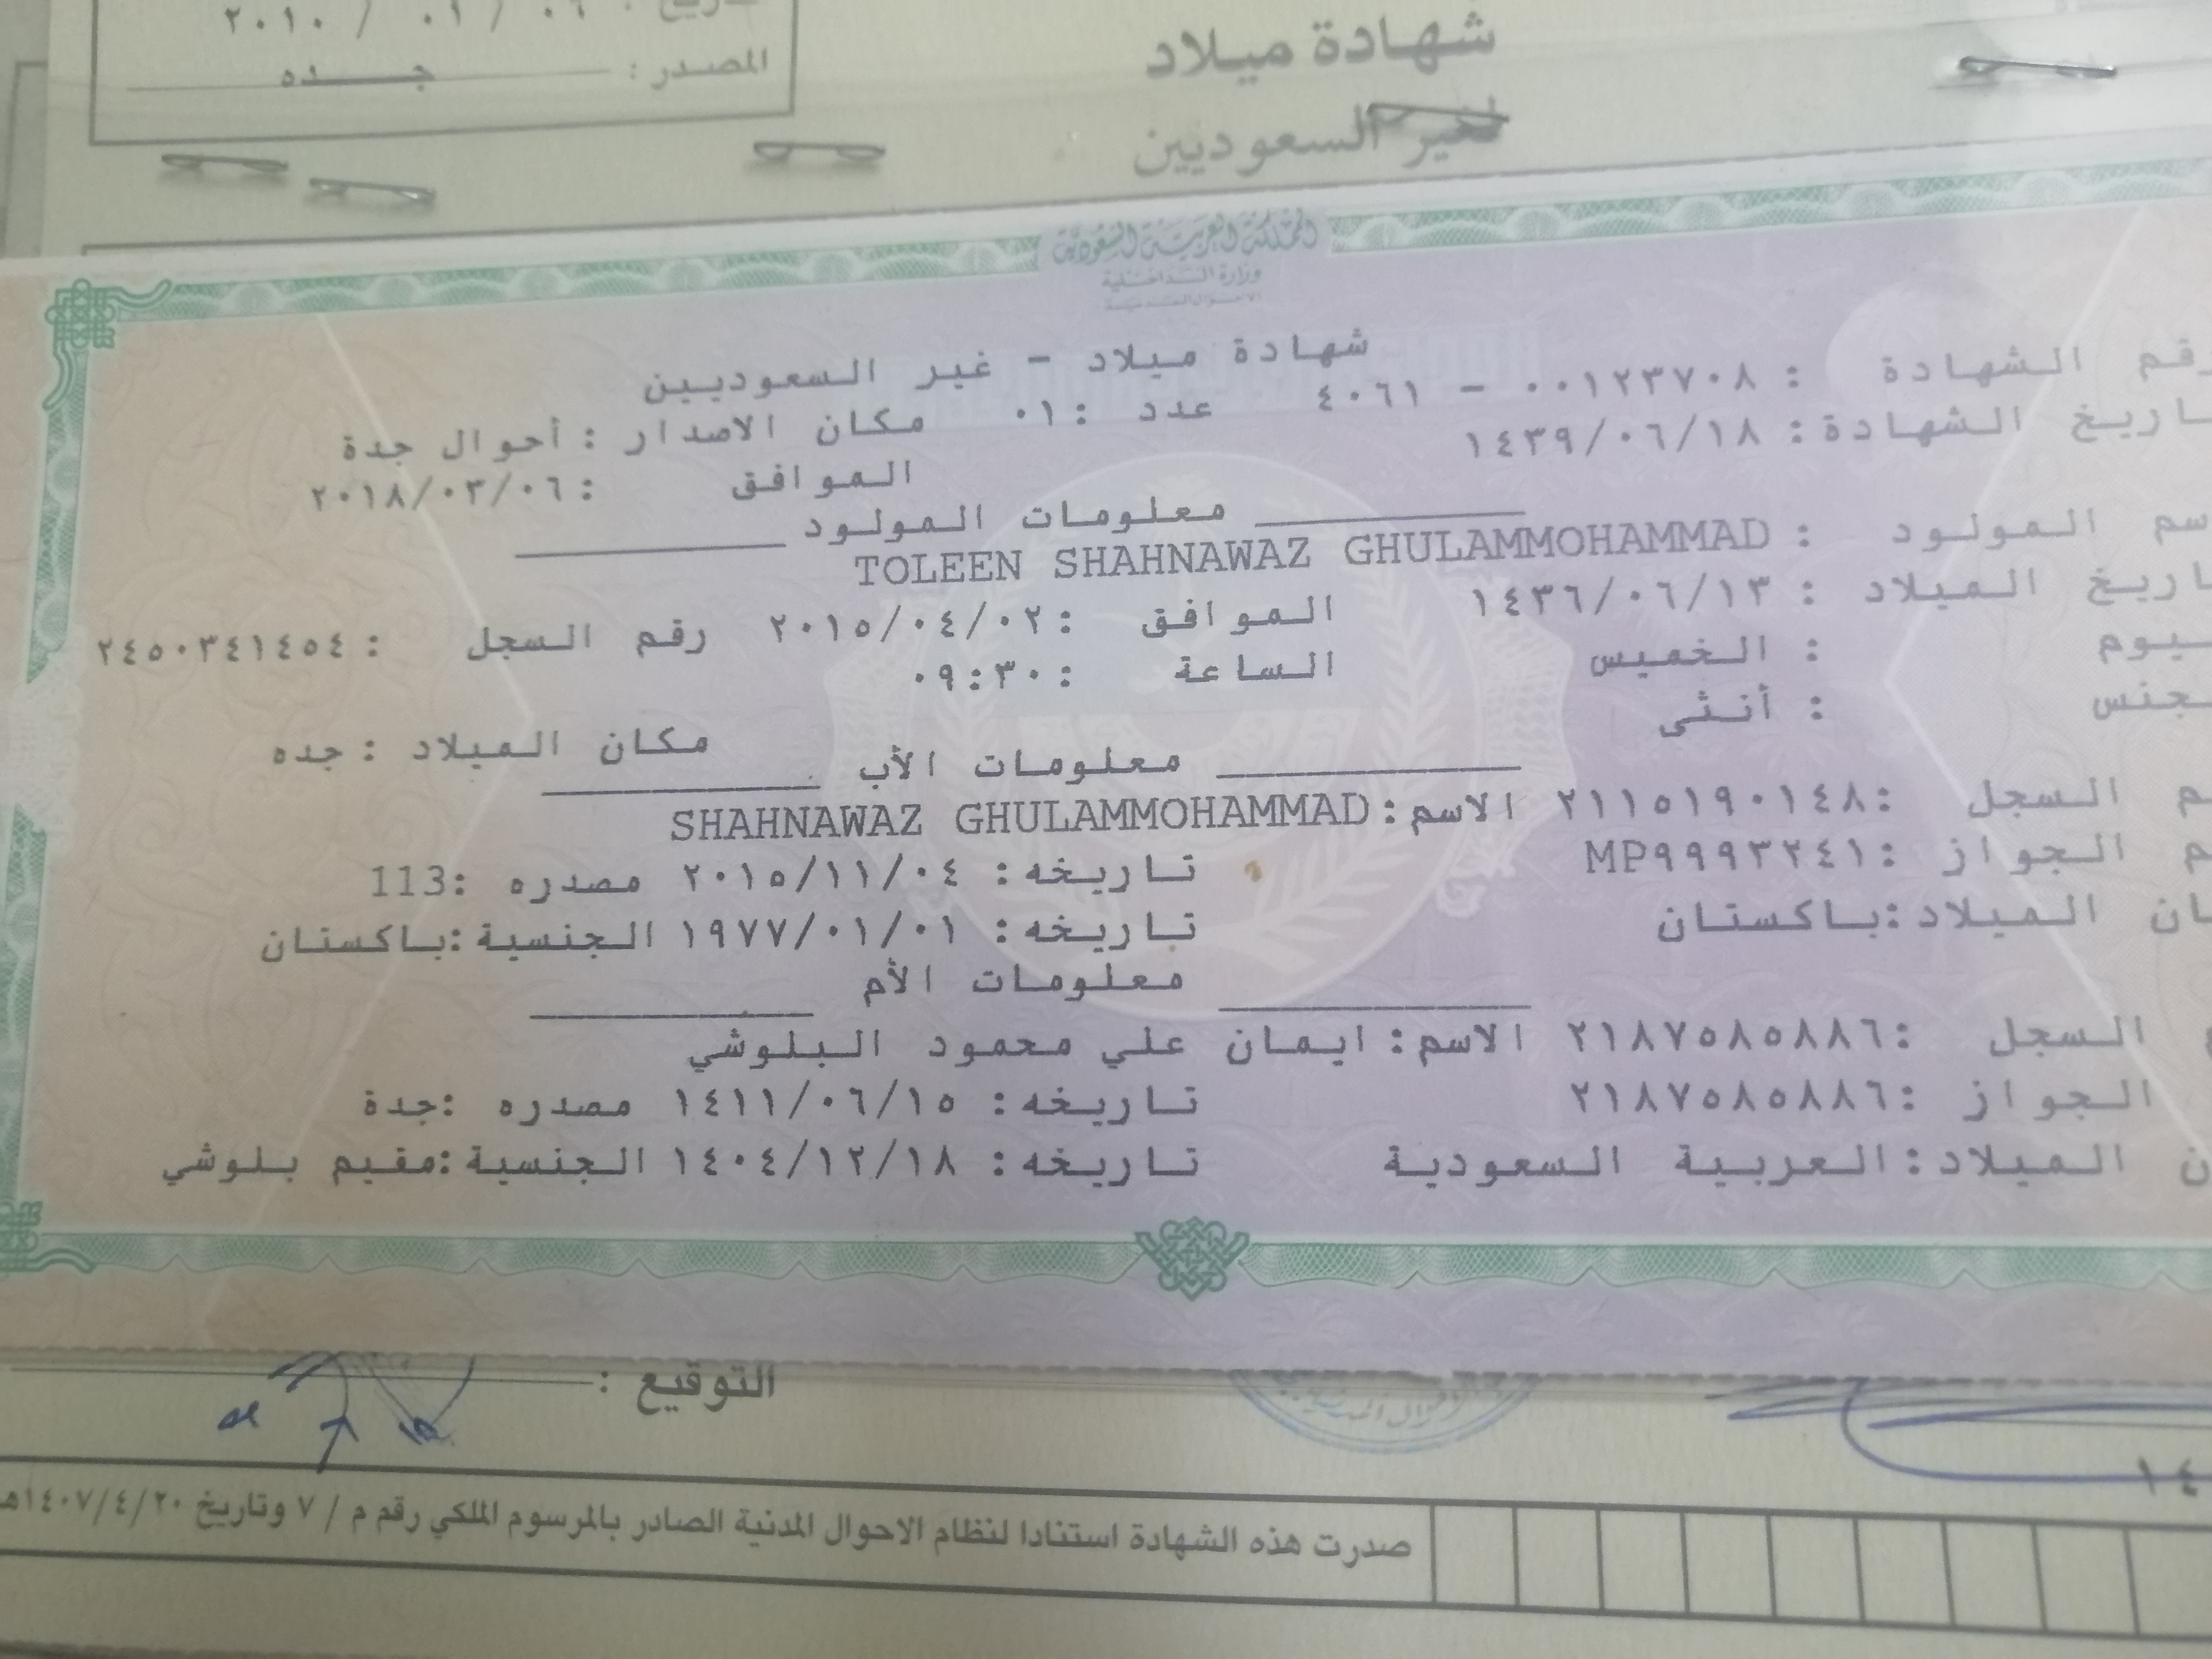 ٢٠١٠ / ٠١ / ٠٦
المصدر : جــــده
شهادة ميلاد
لغير السعوديين
المملكة العربية السعودية
وزارة الداخلية
الأحوال المدنية
شهادة ميلاد - غير السعوديين
رقم الشهادة : ٠٠١٢٣٧٠٨ - ٤٠٦١ عدد :٠١ مكان الاصدار : أحوال جدة
تاريخ الشهادة: ١٤٣٩/٠٦/١٨ الموافق :٢٠١٨/٠٣/٠٦
معلومات المولود
اسم المولود : TOLEEN SHAHNAWAZ GHULAMMOHAMMAD
تاريخ الميلاد : ١٤٣٦/٠٦/١٣ الموافق :٢٠١٥/٠٤/٠٢ رقم السجل :٢٤٥٠٣٤١٤٥٤
ليوم : الخميس الساعة :٠٩:٣٠
لجنس : أنثى مكان الميلاد :جده
معلومات الأب
م السجل :٢١١٥١٩٠١٤٨ الاسم: SHAHNAWAZ GHULAMMOHAMMAD
م الجواز :MP٩٩٩٣٢٤١ تاريخه: ٢٠١٥/١١/٠٤ مصدره :113
ان الميلاد:باكستان تاريخه: ١٩٧٧/٠١/٠١ الجنسية:باكستان
معلومات الأم
السجل :٢١٨٧٥٨٥٨٨٦ الاسم: ايمان علي محمود البلوشي
الجواز :٢١٨٧٥٨٥٨٨٦ تاريخه: ١٤١١/٠٦/١٥ مصدره :جدة
ن الميلاد:العربية السعودية تاريخه: ١٤٠٤/١٢/١٨ الجنسية:مقيم بلوشي
التوقيع :
١٤
صدرت هذه الشهادة استنادا لنظام الاحوال المدنية الصادر بالمرسوم الملكي رقم م / ٧ وتاريخ ١٤٠٧/٤/٢٠هـ